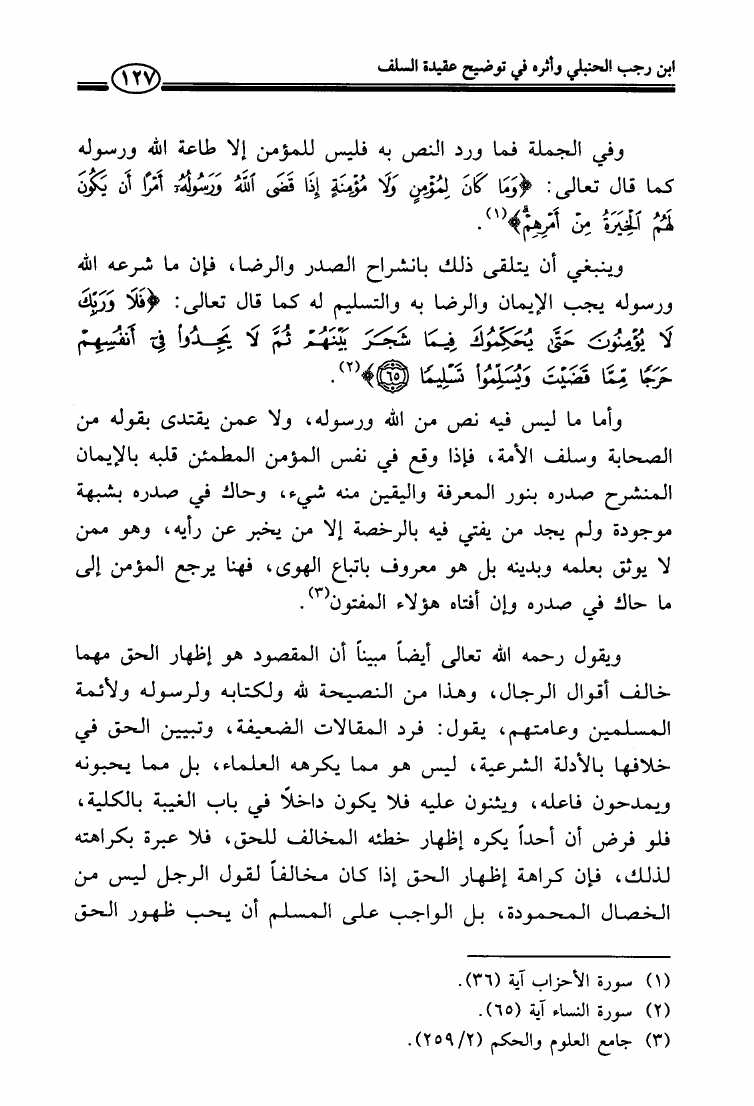 ابن رجب الحنبلي وأثره في توضيح عقيدة السلف
١٢٧
وفي الجملة فما ورد النص به فليس للمؤمن إلا طاعة الله ورسوله
كما قال تعالى: ﴿وَمَا كَانَ لِمُؤْمِنٍ وَلَا مُؤْمِنَةٍ إِذَا قَضَى ٱللَّهُ وَرَسُولُهُۥٓ أَمْرًا أَن يَكُونَ
لَهُمُ ٱلْخِيَرَةُ مِنْ أَمْرِهِمْۗ﴾(١).
وينبغي أن يتلقى ذلك بانشراح الصدر والرضا، فإن ما شرعه الله
ورسوله يجب الإيمان والرضا به والتسليم له كما قال تعالى: ﴿فَلَا وَرَبِّكَ
لَا يُؤْمِنُونَ حَتَّىٰ يُحَكِّمُوكَ فِيمَا شَجَرَ بَيْنَهُمْ ثُمَّ لَا يَجِدُوا۟ فِىٓ أَنفُسِهِمْ
حَرَجًا مِّمَّا قَضَيْتَ وَيُسَلِّمُوا۟ تَسْلِيمًا ۝٦٥﴾(٢).
وأما ما ليس فيه نص من الله ورسوله، ولا عمن يقتدى بقوله من
الصحابة وسلف الأمة، فإذا وقع في نفس المؤمن المطمئن قلبه بالإيمان
المنشرح صدره بنور المعرفة واليقين منه شيء، وحاك في صدره بشبهة
موجودة ولم يجد من يفتي فيه بالرخصة إلا من يخبر عن رأيه، وهو ممن
لا يوثق بعلمه وبدينه بل هو معروف باتباع الهوى، فهنا يرجع المؤمن إلى
ما حاك في صدره وإن أفتاه هؤلاء المفتون(٣).
ويقول رحمه الله تعالى أيضاً مبيناً أن المقصود هو إظهار الحق مهما
خالف أقوال الرجال، وهذا من النصيحة لله ولكتابه ولرسوله ولأئمة
المسلمين وعامتهم، يقول: فرد المقالات الضعيفة، وتبيين الحق في
خلافها بالأدلة الشرعية، ليس هو مما يكرهه العلماء، بل مما يحبونه
ويمدحون فاعله، ويثنون عليه فلا يكون داخلاً في باب الغيبة بالكلية،
فلو فرض أن أحداً يكره إظهار خطئه المخالف للحق، فلا عبرة بكراهته
لذلك، فإن كراهة إظهار الحق إذا كان مخالفاً لقول الرجل ليس من
الخصال المحمودة، بل الواجب على المسلم أن يحب ظهور الحق
(١) سورة الأحزاب آية (٣٦).
(٢) سورة النساء آية (٦٥).
(٣) جامع العلوم والحكم (٢/ ٢٥٩).